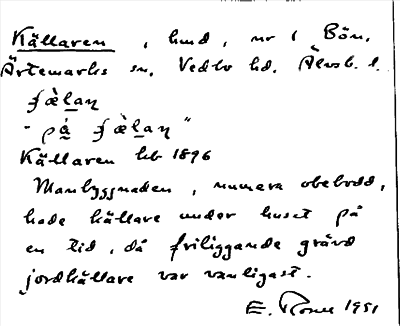 Källaren, hmd, nr 1 Bön,
Ärtemarks sn, Vedbo hd. Älvsb. l.
ʃæ̀laɳ
- på ʃæ̀laɳ "
Källaren hb 1896
Manbyggnaden, numera obebodd,
hade källare under huset på
en tid, då friliggande grävd
jordkällare var vanligast.
E. 1951